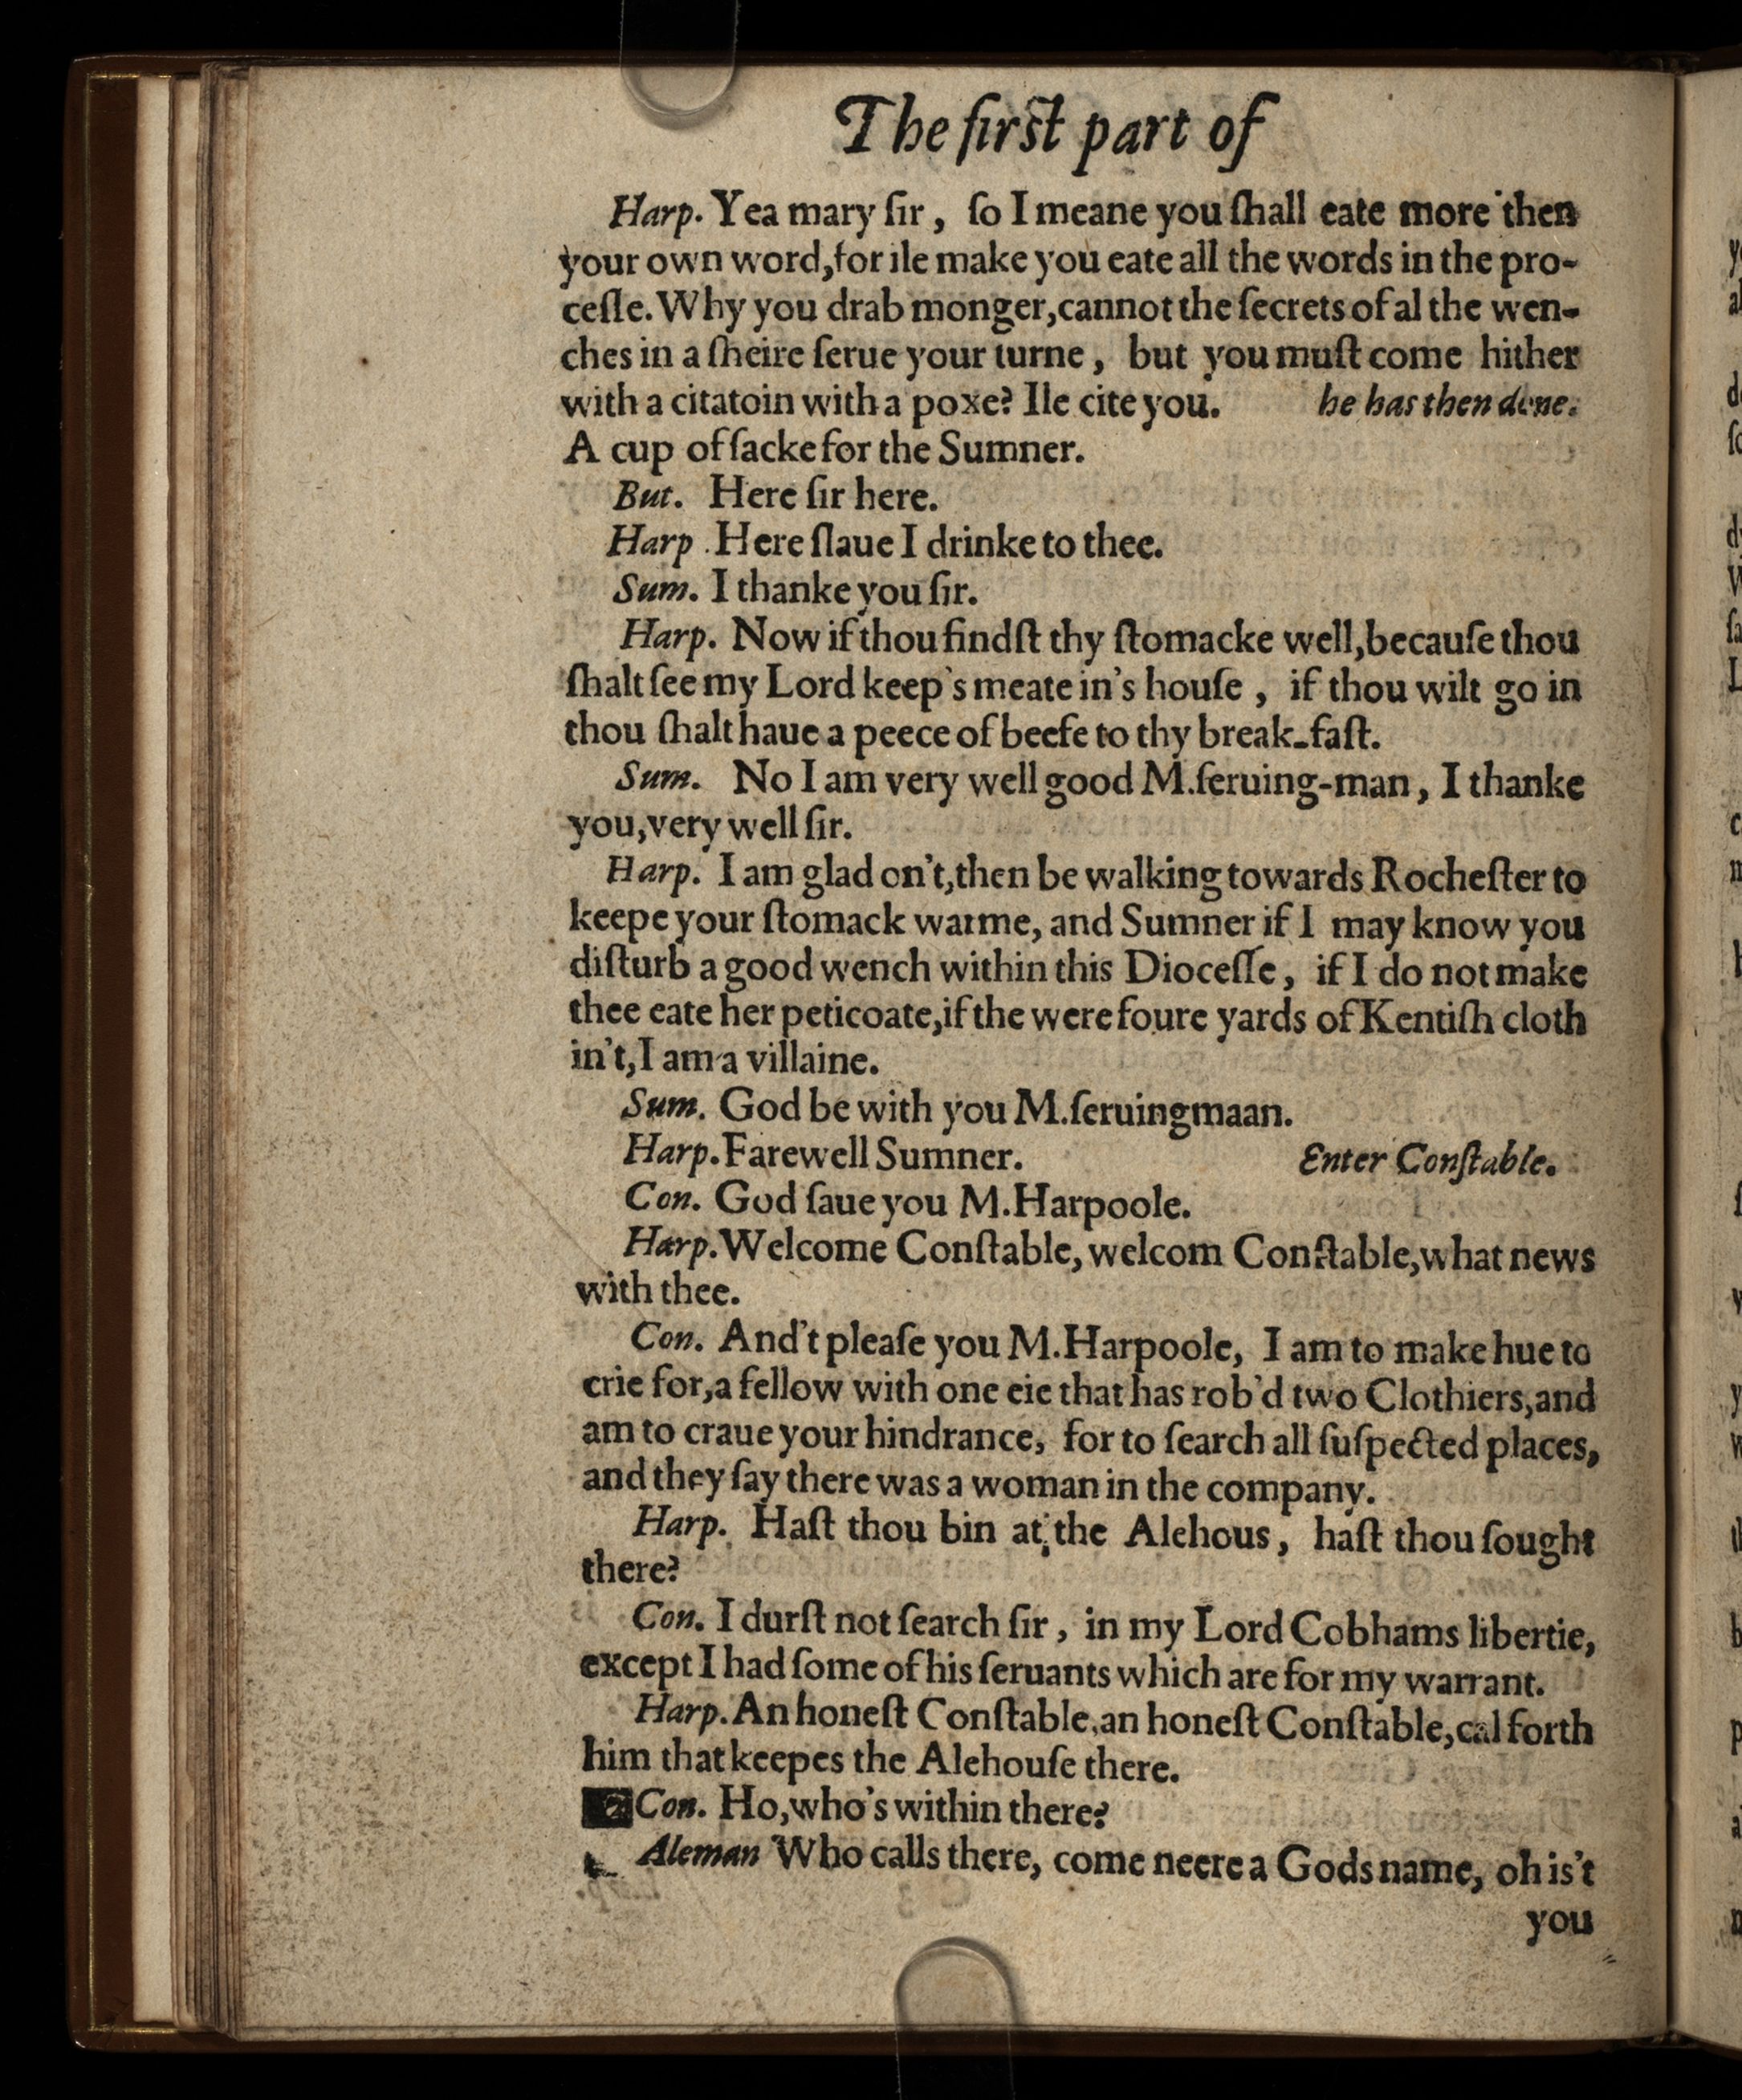 The first part of
Harp. Yea mary ſir, ſo I meane you ſhall eate more then
your own word,for ile make you eate all the words in the pro-
ceſſe. Why you drab monger,cannot the ſecrets of al the wen-
ches in a ſheire ſerue your turne, but you muſt come hither
with a citatoin with a poxe? Ile cite you. he has then done.
A cup of ſacke for the Sumner.
But. Here ſir here.
Harp. Here ſlaue I drinke to thee.
Sum. I thanke you ſir.
Harp. Now if thou findſt thy ſtomacke well,becauſe thou
ſhalt ſee my Lord keep's meate in's houſe, if thou wilt go in
thou ſhalt haue a peece of beefe to thy break-faſt.
Sum. No I am very well good M.ſeruing-man, I thanke
you,very well ſir.
Harp. I am glad on't,then be walking towards Rocheſter to
keepe your ſtomack warme, and Sumner if I may know you
diſturb a good wench within this Dioceſſe, if I do not make
thee eate her peticoate,if the were foure yards of Kentiſh cloth
in't,I am a villaine.
Sum. God be with you M.ſeruingmaan.
Harp. Farewell Sumner. Enter Conſtable.
Con. God ſaue you M.Harpoole.
Harp. Welcome Conſtable, welcom Conſtable,what news
with thee.
Con. And't pleaſe you M.Harpoole, I am to make hue to
crie for,a fellow with one eie that has rob'd two Clothiers,and
am to craue your hindrance, for to ſearch all ſuſpected places,
and they ſay there was a woman in the company.
Harp. Haſt thou bin at the Alehous, haſt thou ſought
there?
Con. I durſt not ſearch ſir, in my Lord Cobhams libertie,
except I had ſome of his ſeruants which are for my warrant.
Harp. An honeſt Conſtable,an honeſt Conſtable,cal forth
him that keepes the Alehouſe there.
Con. Ho,who's within there?
Aleman Who calls there, come neere a Gods name, oh is't
you